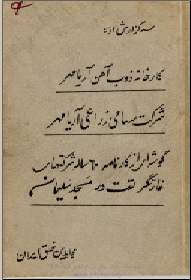 سه گزارش از:
کارخانه ذوب آهن آریامهر
شرکت سهامی زراعی آریامهر
گوشه‌ای از کارنامه ۶۰ ساله شرکتهای
غارتگر نفت در مسجد سلیمان